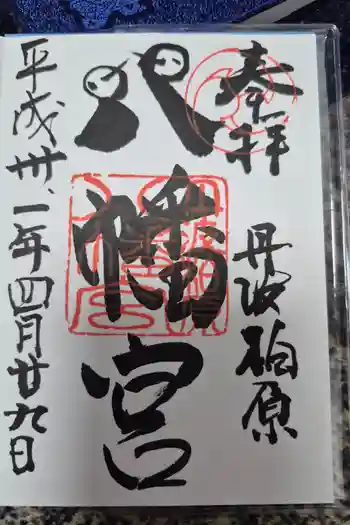 奉拝
丹波柏原
八幡宮
平成卅一年四月廿九日